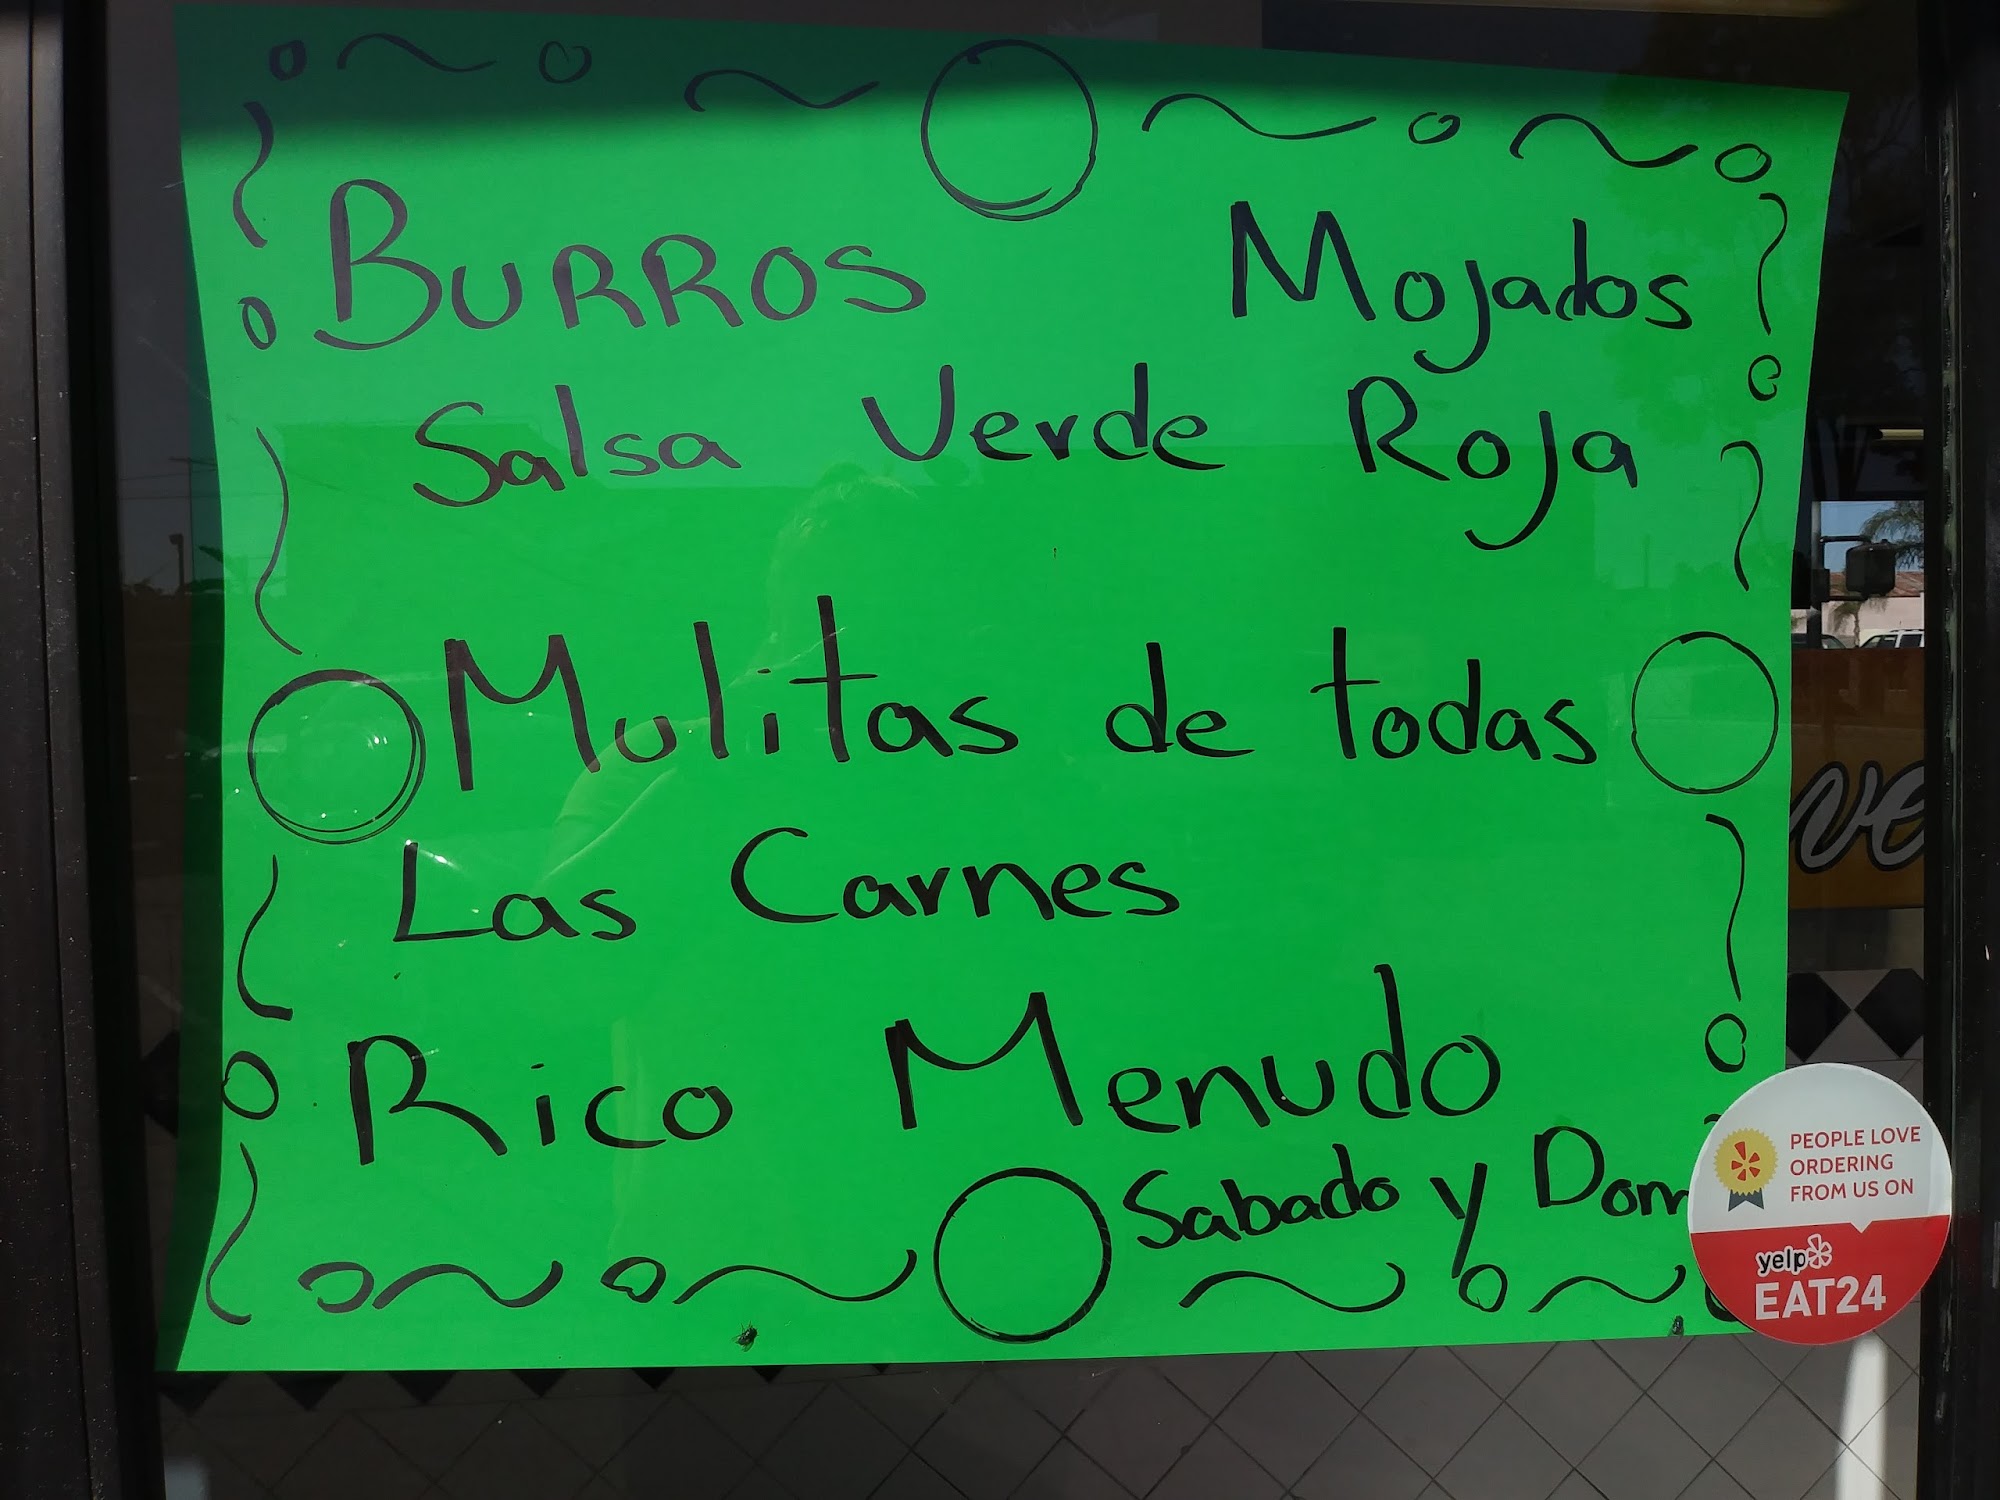 BURROS Mojados
Salsa Verde Roja
Mulitas de todas
Las Carnes
Rico Menudo
Sabado y Dom
PEOPLE LOVE
ORDERING
FROM US ON
yelp
EAT24
ve